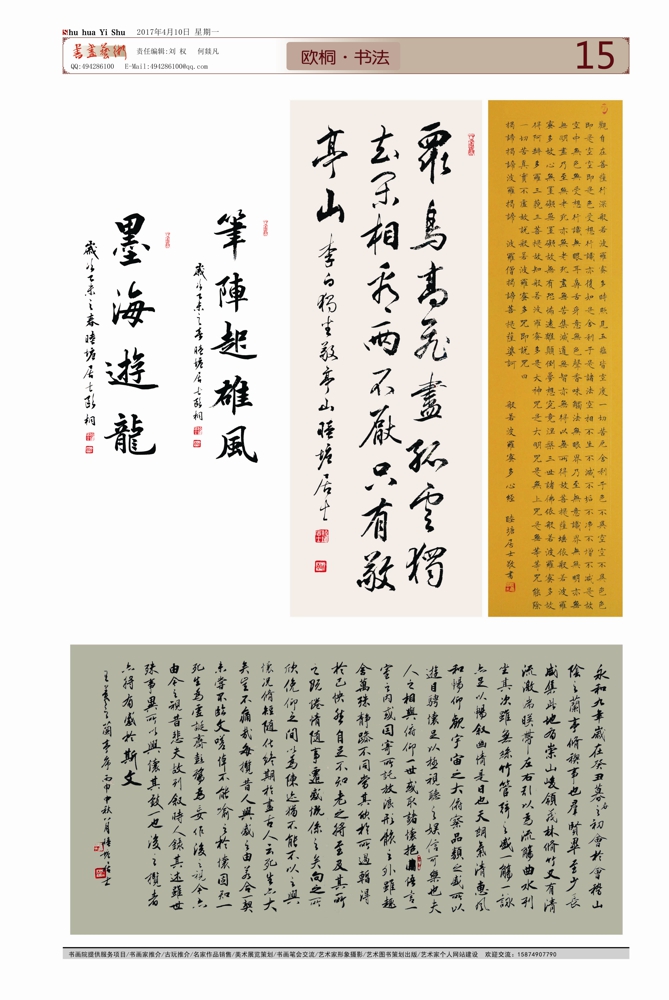 Shu hua Yi Shu 2017年4月10日 星期一
書畫藝術 责任编辑:刘 权 何燚凡
QQ:494286100 E-Mail:494286100@qq.com
欧桐·书法
15
觀自在菩薩行深般若波羅蜜多時照見五蘊皆空度一切苦厄舍利子色不異空空不異色色
即是空空即是色受想行識亦復如是舍利子是諸法空相不生不滅不垢不淨不增不減是故
空中無色無受想行識無眼耳鼻舌身意無色聲香味觸法無眼界乃至無意識界無無明亦
無無明盡乃至無老死亦無老死盡無苦集滅道無智亦無得以無所得故菩提薩埵依般若波羅
蜜多故心無罣礙無罣礙故無有恐怖遠離顛倒夢想究竟涅槃三世諸佛依般若波羅蜜多故
得阿耨多羅三藐三菩提故知般若波羅蜜多是大神咒是大明咒是無上咒是無等等咒能除
一切苦真實不虛故說般若波羅蜜多咒即說咒曰
揭諦揭諦波羅揭諦 波羅僧揭諦菩提薩婆訶 般若波羅蜜多心經 睦塘居士敬書
眾鳥高飛盡孤雲獨
去閑相看兩不厭只有敬
亭山 李白獨坐敬亭山睦塘居士
筆陣起雄風
歲次乙未之春睦塘居士歐桐
墨海遊龍
歲次乙未之春睦塘居士歐桐
永和九年歲在癸丑暮春之初會於會稽山
陰之蘭亭脩禊事也群賢畢至少長
咸集此地有崇山峻領茂林脩竹又有清
流激湍暎帶左右引以為流觴曲水列
坐其次雖無絲竹管絃之盛一觴一詠
亦足以暢敘幽情是日也天朗氣清惠風
和暢仰觀宇宙之大俯察品類之盛所以
遊目騁懷足以極視聽之娛信可樂也夫
人之相與俯仰一世或取諸懷抱悟言一
室之內或因寄所託放浪形骸之外雖趣
舍萬殊靜躁不同當其欣於所遇輙得
於己快然自足不知老之將至及其所
之既惓情隨事遷感慨係之矣向之所
欣俛仰之間以為陳迹猶不能不以之興
懷況脩短隨化終期於盡古人云死生亦大
矣豈不痛哉每攬昔人興感之由若合一契
未嘗不臨文嗟悼不能喻之於懷固知一
死生為虛誕齊彭殤為妄作後之視今亦
由今之視昔悲夫故列敘時人錄其述雖世
殊事異所以興懷其致一也後之攬者
亦將有感於斯文
王羲之蘭亭序丙申中秋八月睦塘居士
书画院提供服务项目/书画家推介/古玩推介/名家作品销售/美术展览策划/书画笔会交流/艺术家形象摄影/艺术图书策划出版/艺术家个人网站建设 欢迎交流:15874907790